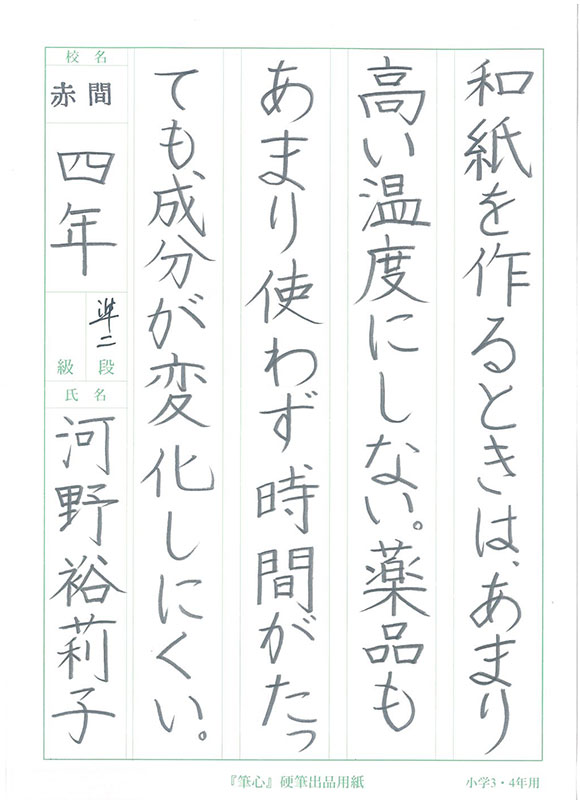 和紙を作るときは、あまり
高い温度にしない。薬品も
あまり使わず時間がたっ
ても、成分が変化しにくい。
校名
赤間
四年
準二
級 段
氏名
河野裕莉子
『筆心』硬筆出品用紙
小学3・4年用